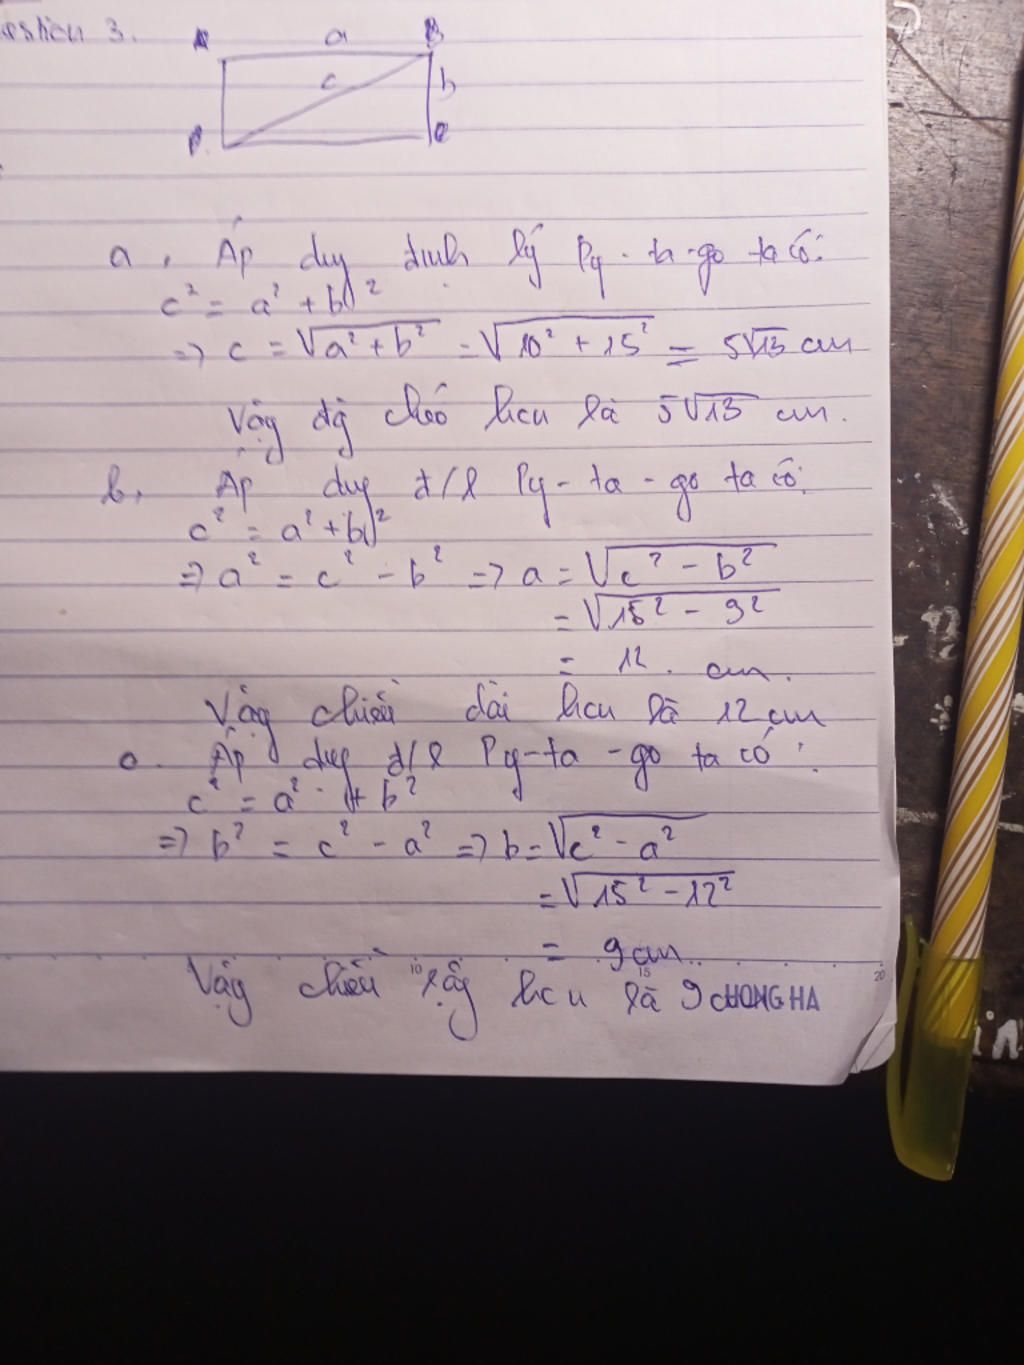 estion 3.
a
B
c
b
a, Áp dụng định lý Py-ta-go ta có:
c² = a² + b²
=> c = √a² + b² = √10² + 15² = 5√13 cm
Vậy độ chéo hcn là 5√13 cm.
b, Áp dụng đ/l Py-ta-go ta có:
c² = a² + b²
=> a² = c² - b² => a = √c² - b²
= √15² - 9²
= 12 cm.
Vậy chiều dài hcn là 12 cm
c. Áp dụng đ/l Py-ta-go ta có:
c² = a² + b²
=> b² = c² - a² => b = √c² - a²
= √15² - 12²
= 9 cm.
10 15 20
Vậy chiều rộng hcn là 9 c
HONG HA